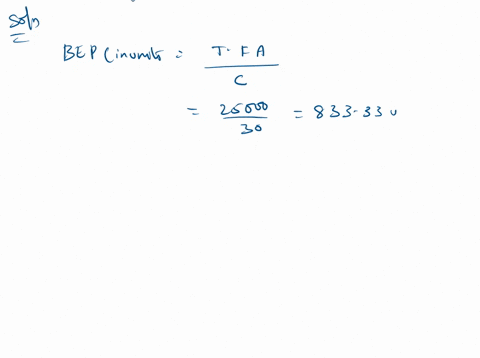 Soln
BEP (in units = T. F A / C
= 25000 / 30 = 833.33 u